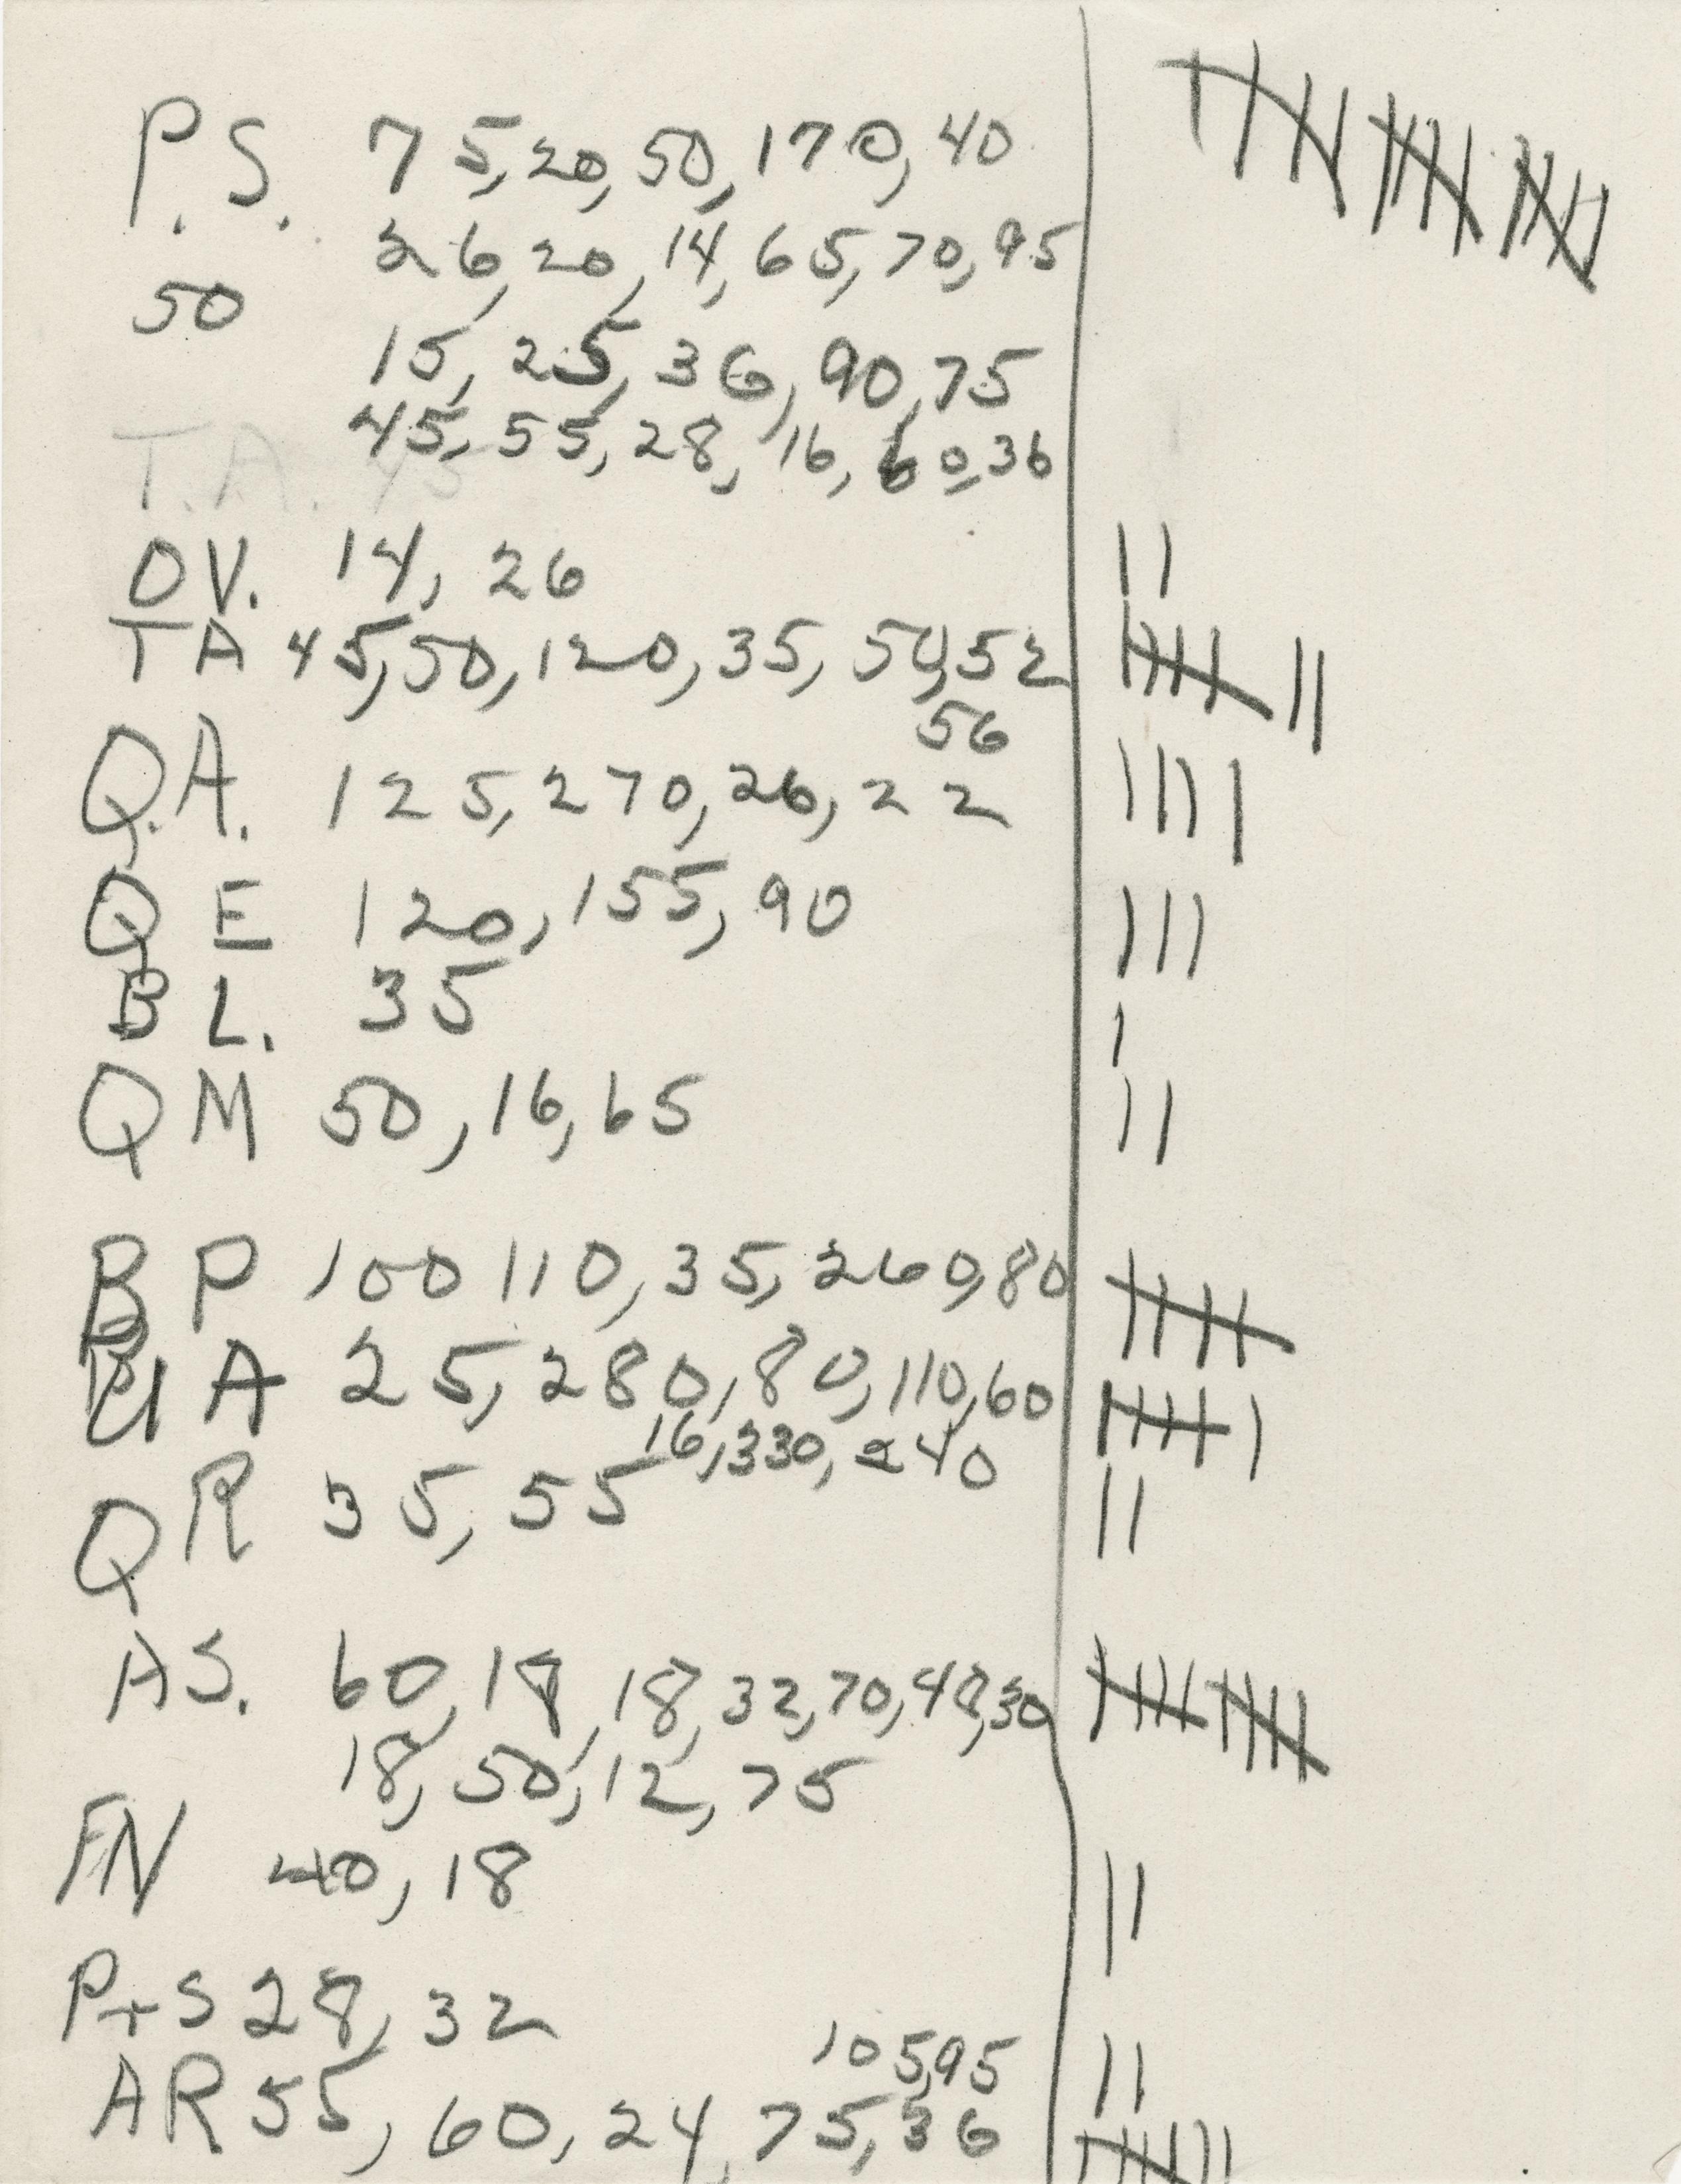 P.S. 75, 20, 50, 170, 40
26, 20, 14, 65, 70, 95
50
15, 25, 36, 90, 75
45, 55, 28, 16, 60, 36
T.A. 45
OV. 14, 26
TA 45, 50, 120, 35, 50, 52
56
Q.A. 125, 270, 26, 22
QE 120, 155, 90
BL. 35
QM 50, 16, 65
BP 100 110, 35, 260, 80
UA 25, 280, 80, 110, 60
16, 330, 240
QR 35, 55
AS. 60, 18, 18, 32, 70, 48, 30
18, 50, 12, 75
FN 40, 18
P+S 28, 32
105, 95
AR 55, 60, 24, 75, 36